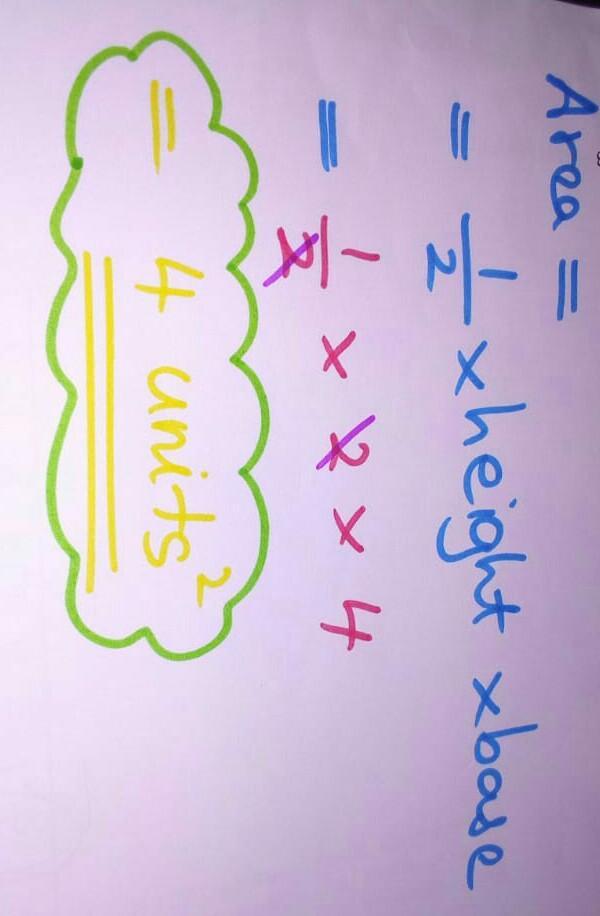 Area =
= 1/2 x height x base
= 1/2 x 2 x 4
= 4 units²